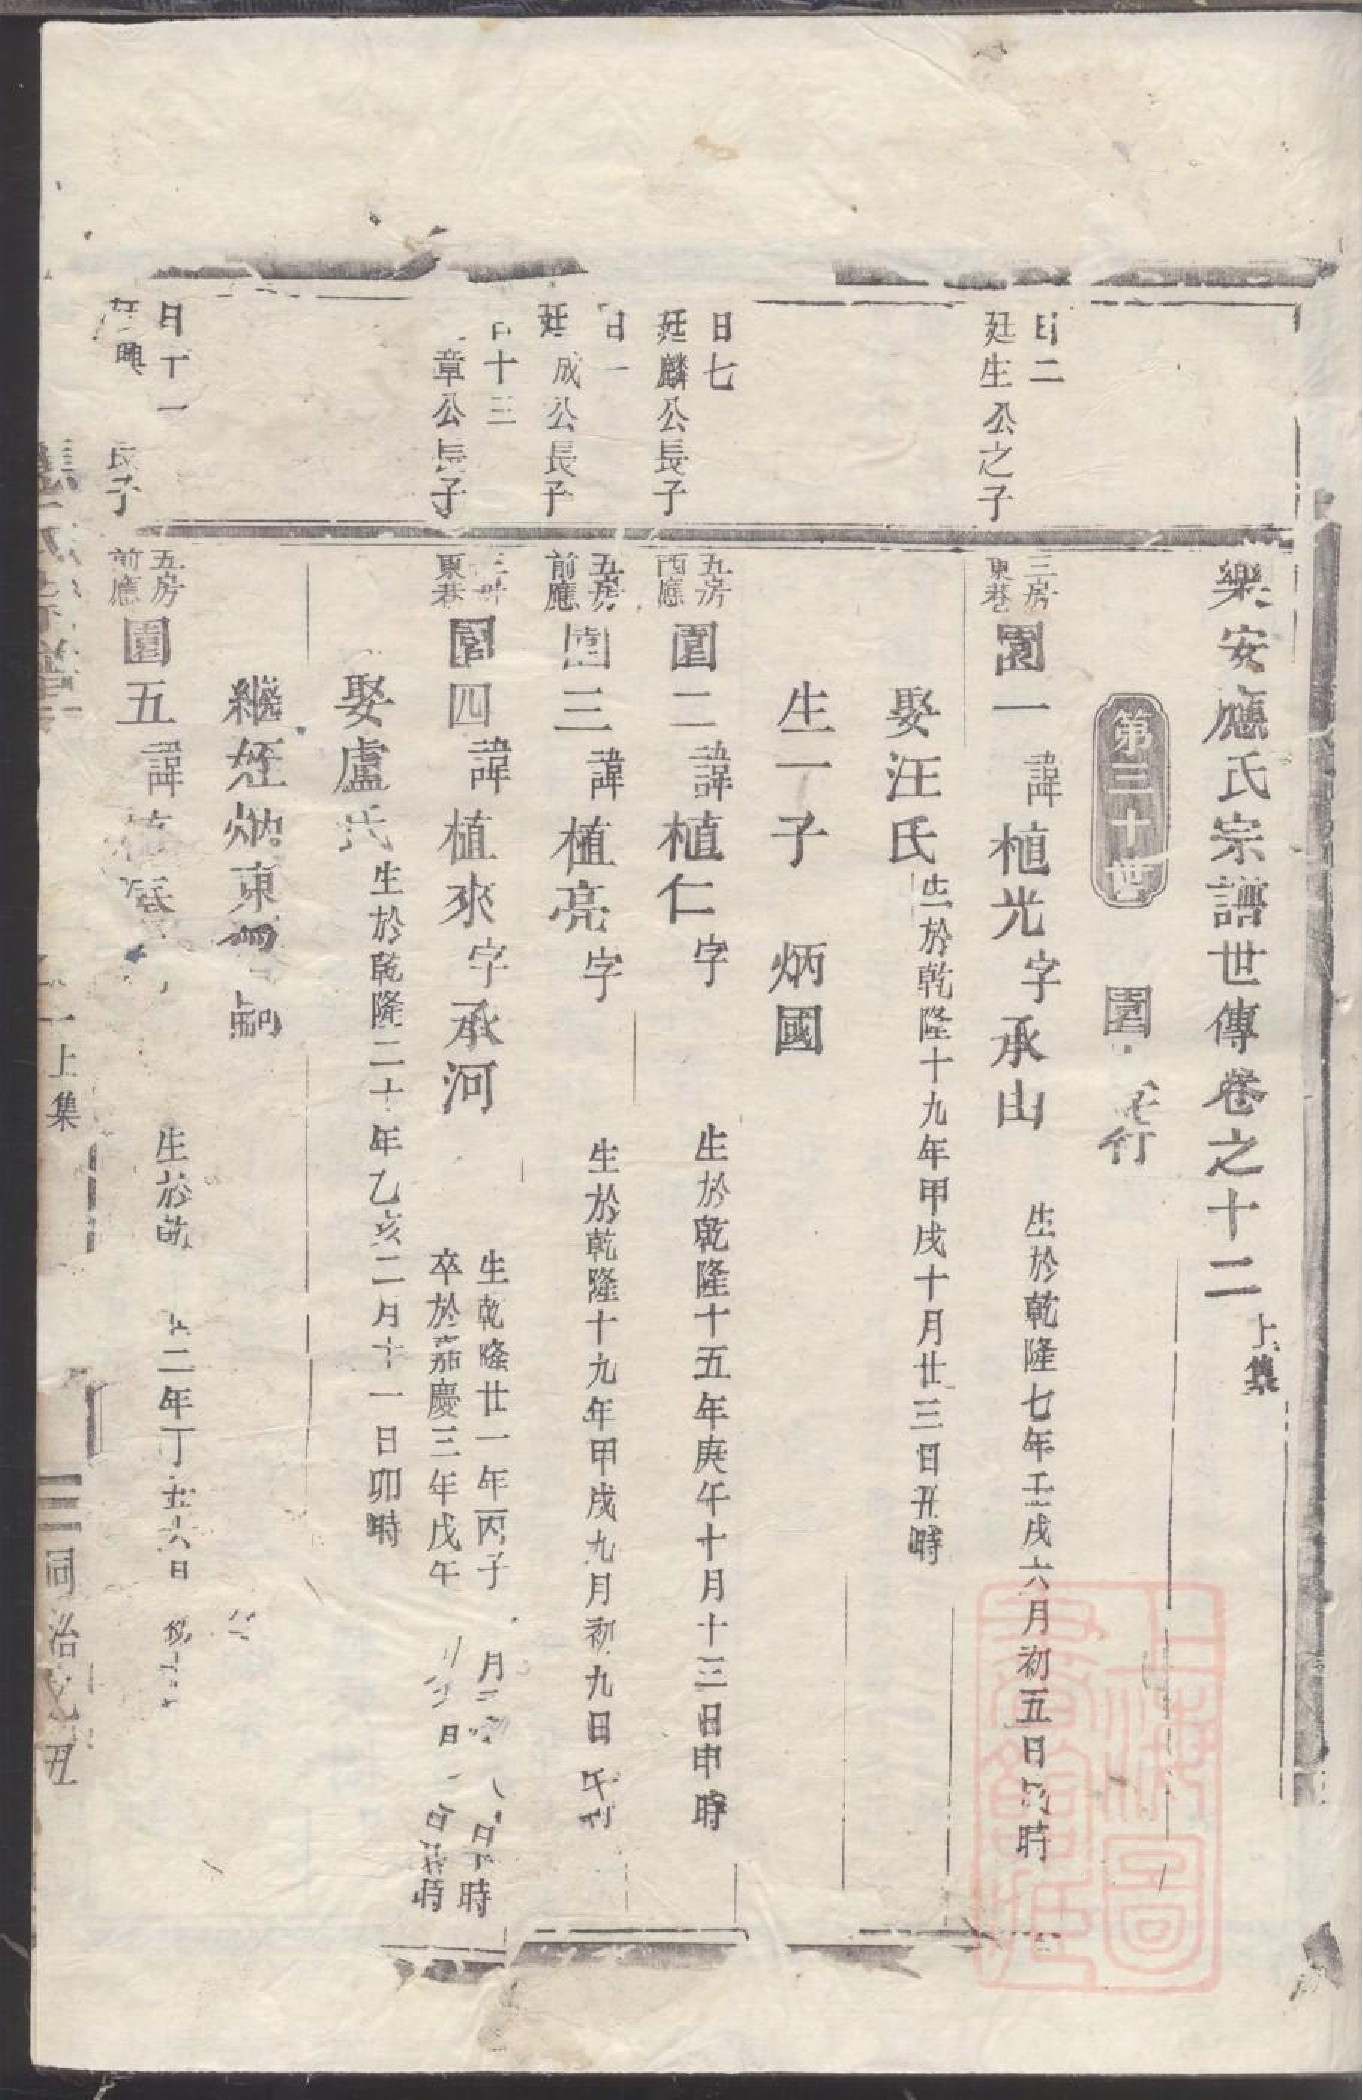 樂安應氏宗譜世傳卷之十二 上集
第三十世 園行
日二
廷生公之子
三房
東巷
園一 諱植光字承山 生於乾隆七年壬戌六月初五日時
娶汪氏 生於乾隆十九年甲戌十月廿三日丑時
生一子 炳國
日七
廷麟公長子
五房
西應
園二 諱植仁字 生於乾隆十五年庚午十月十三日申時
日一
廷成公長子
五房
前應
園三 諱植亮字 生於乾隆十九年甲戌九月初九日
十三
章公長子
東巷
園四 諱植來字承河 生乾隆廿一年丙子月日時
卒於嘉慶三年戊午日時
娶盧氏 生於乾隆二十年乙亥二月十一日卯時
繼姪炳東嗣
日十一
興長子
五房
前應
園五 諱 生於乾二年丁丑六日
上集
同治乙丑
上海圖書館藏